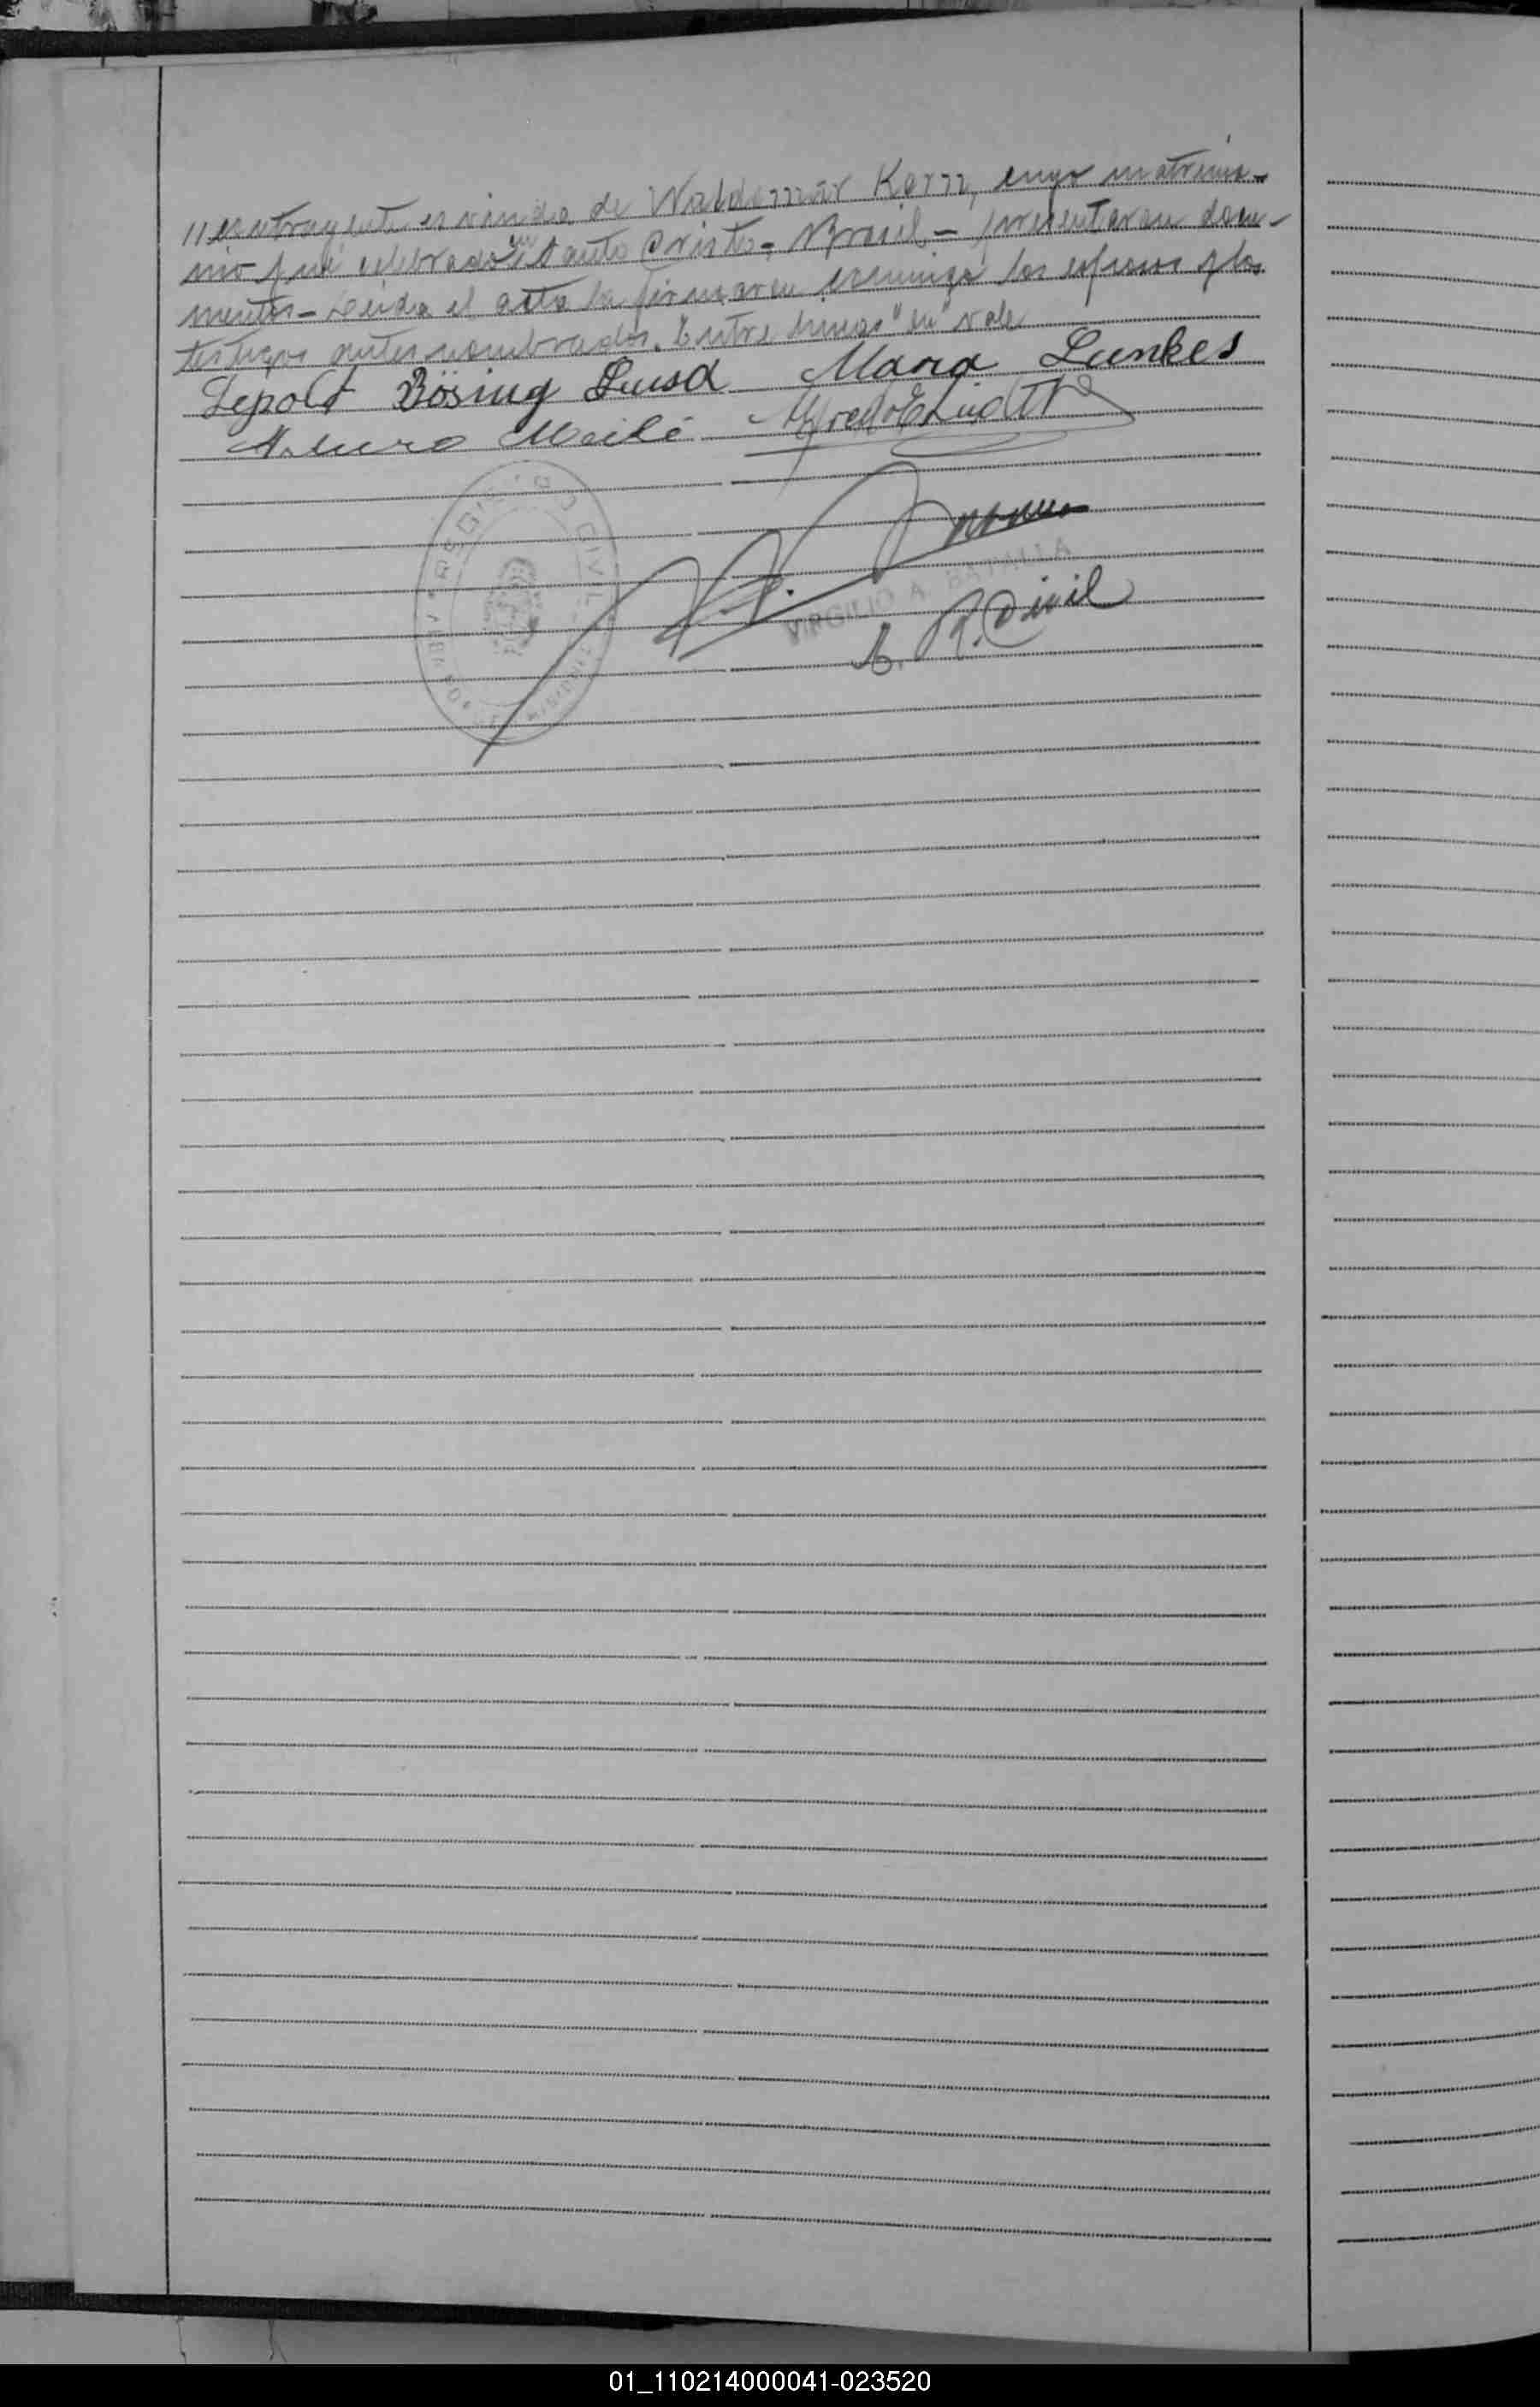 //contrayente es viuda de Waldemar Korn, cuyo matrimo-
nio fué celebrado en Santo Cristo - Brasil - presentaron docu-
mentos - Leída el acta la firmaron conmigo los esposos y los
testigos antes nombrados. Entre líneas "en" vale
Lepold Bösing Maria Lunkes
Arturo
VIRGILIO A. BATALLA
R. Civil
REGISTRO CIVIL
01_110214000041-023520